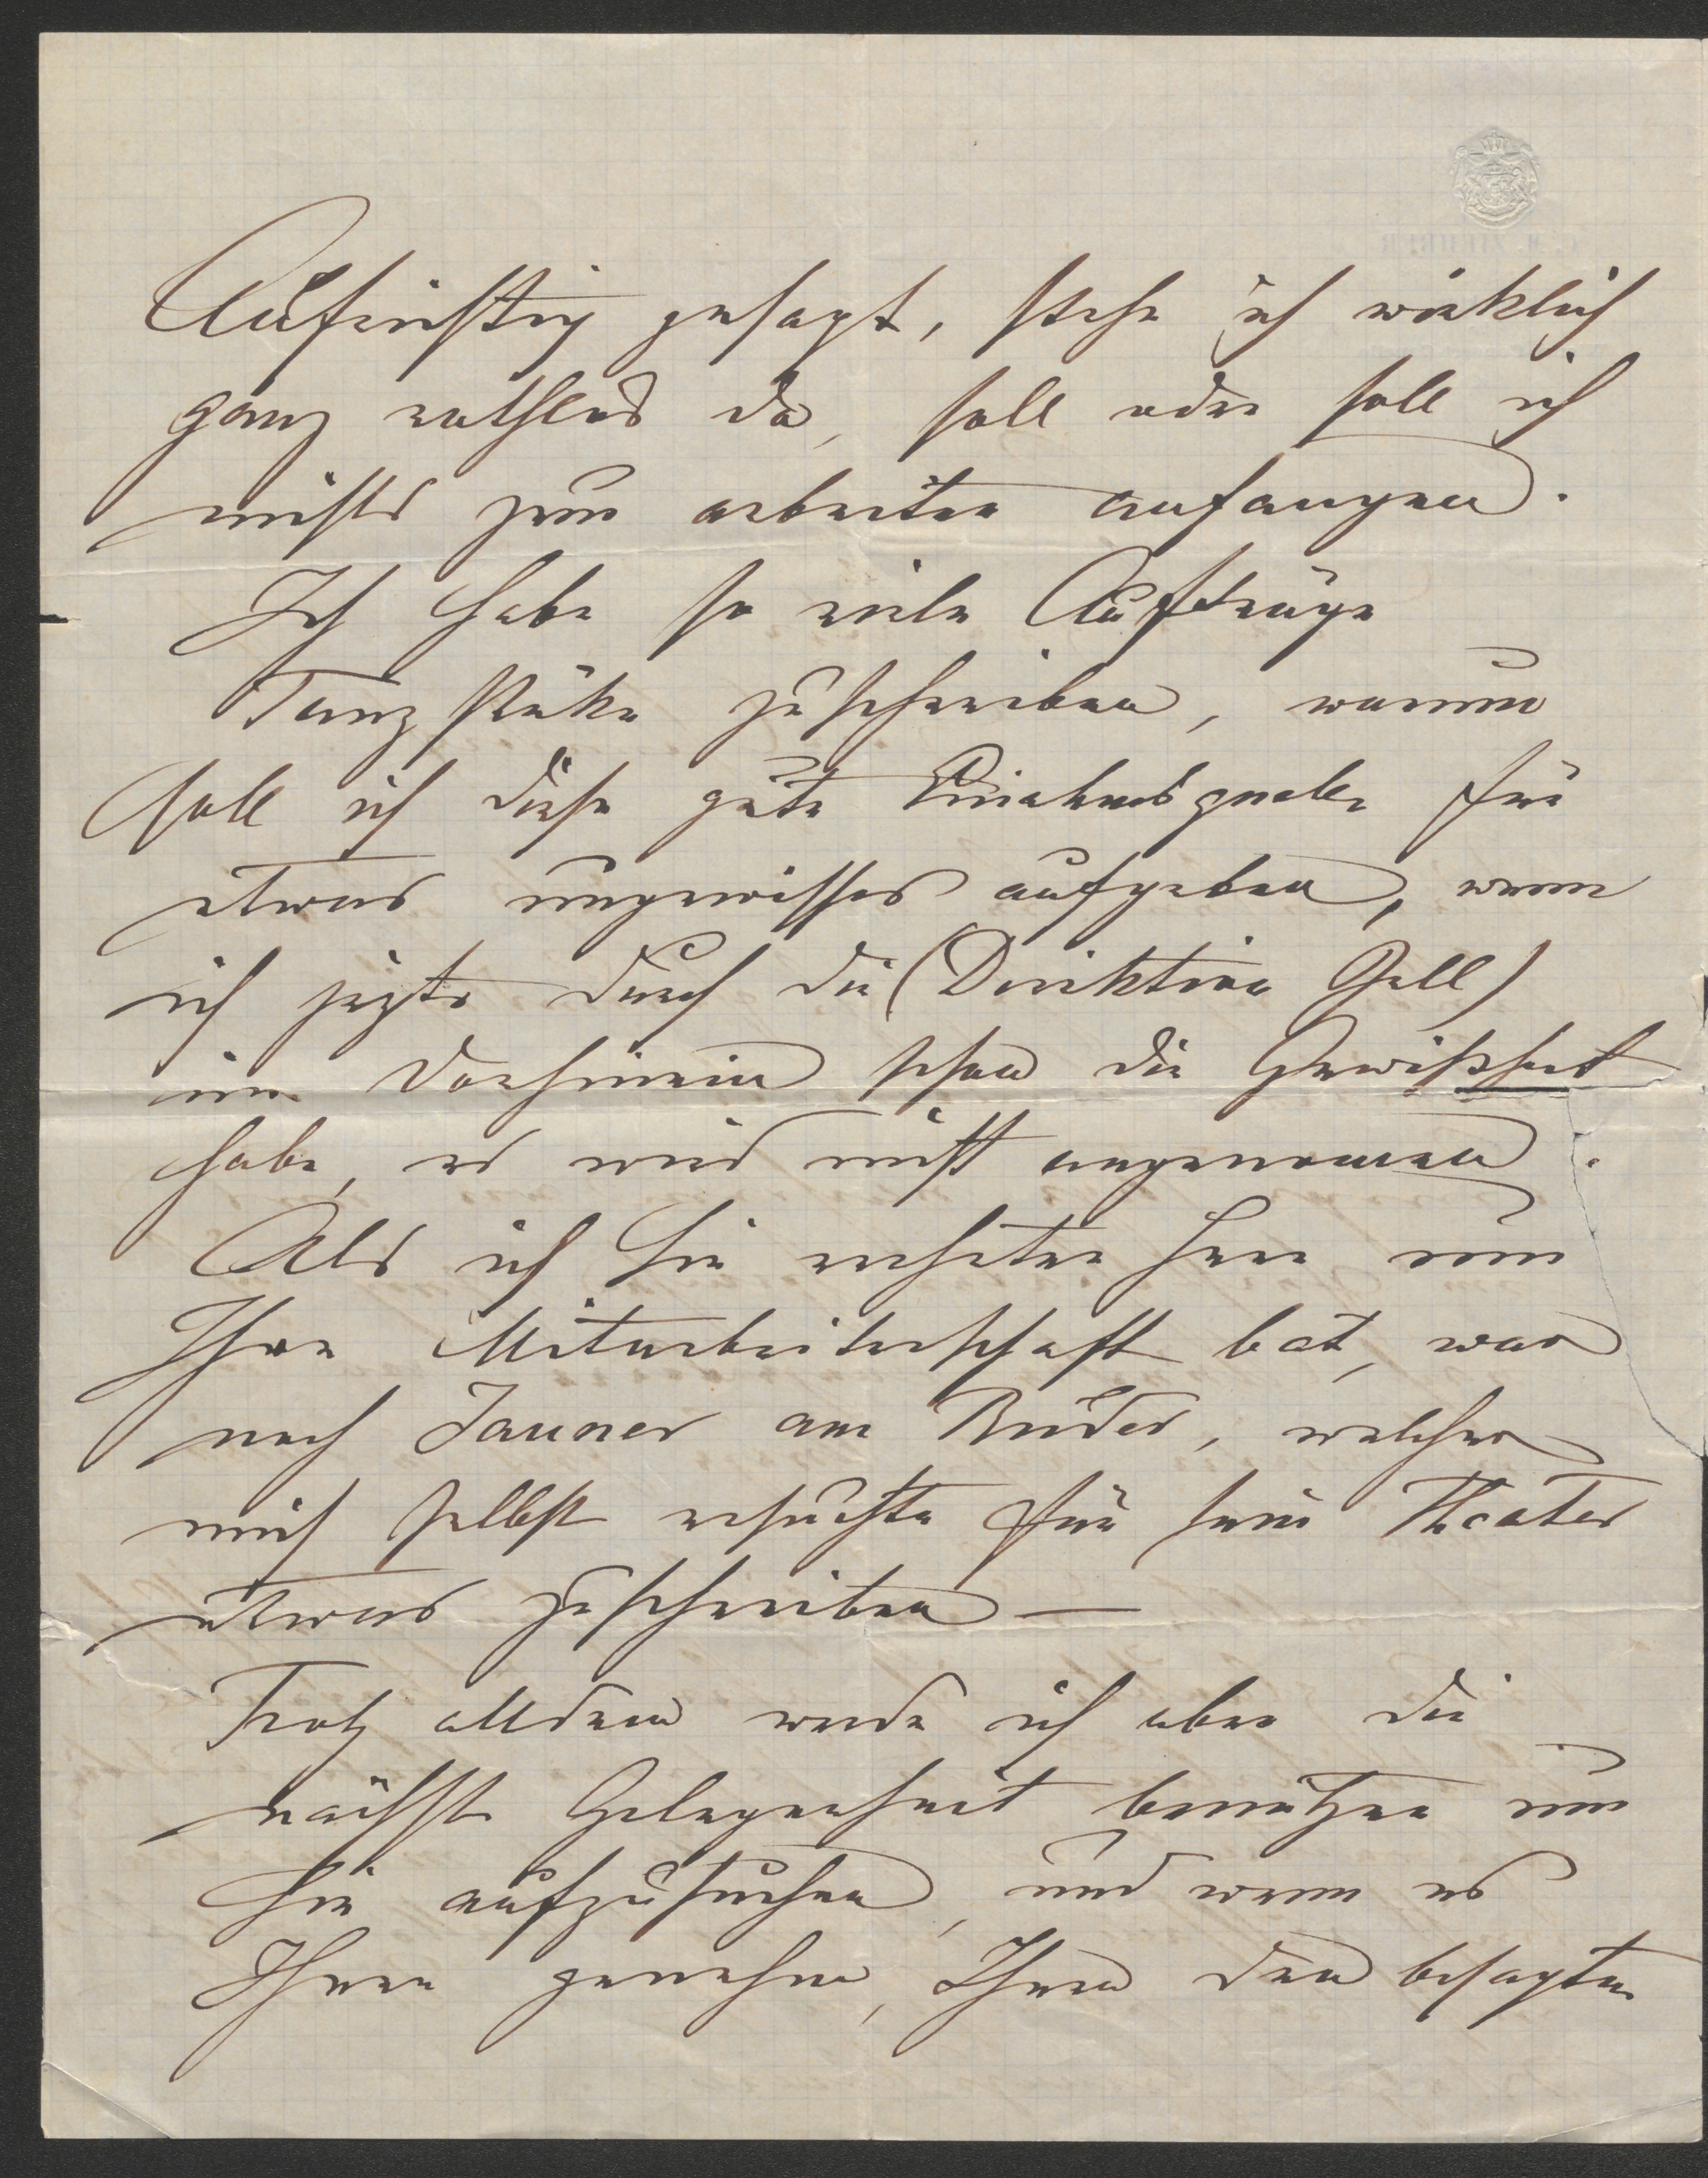 Aufrichtig gesagt, stehe ich wirklich
ganz rathlos da, soll oder soll ich
nichts zum arbeiten anfangen.
Ich habe so viele Aufträge
Tanzstüke zuschreiben, warum
soll ich diese gute Einahmsquelle für
etwas ungewisses aufgeben, wenn
ich jezte durch die (Direktion Gell)
im Vorhinein schon die Gewißheit
habe, es wird nicht angenomen.
Als ich Sie verehrter Herr um
Ihre Mitarbeiterschaft bat, war
noch Jauner am Ruder, welcher
mich selbst ersuchte für sein Theater
etwas zuschreiben —
Trotz alldem werde ich aber die
nächste Gelegenheit benützen um
Sie aufzusuchen, und wenn es
Ihnen genehm, Ihnen den besagten